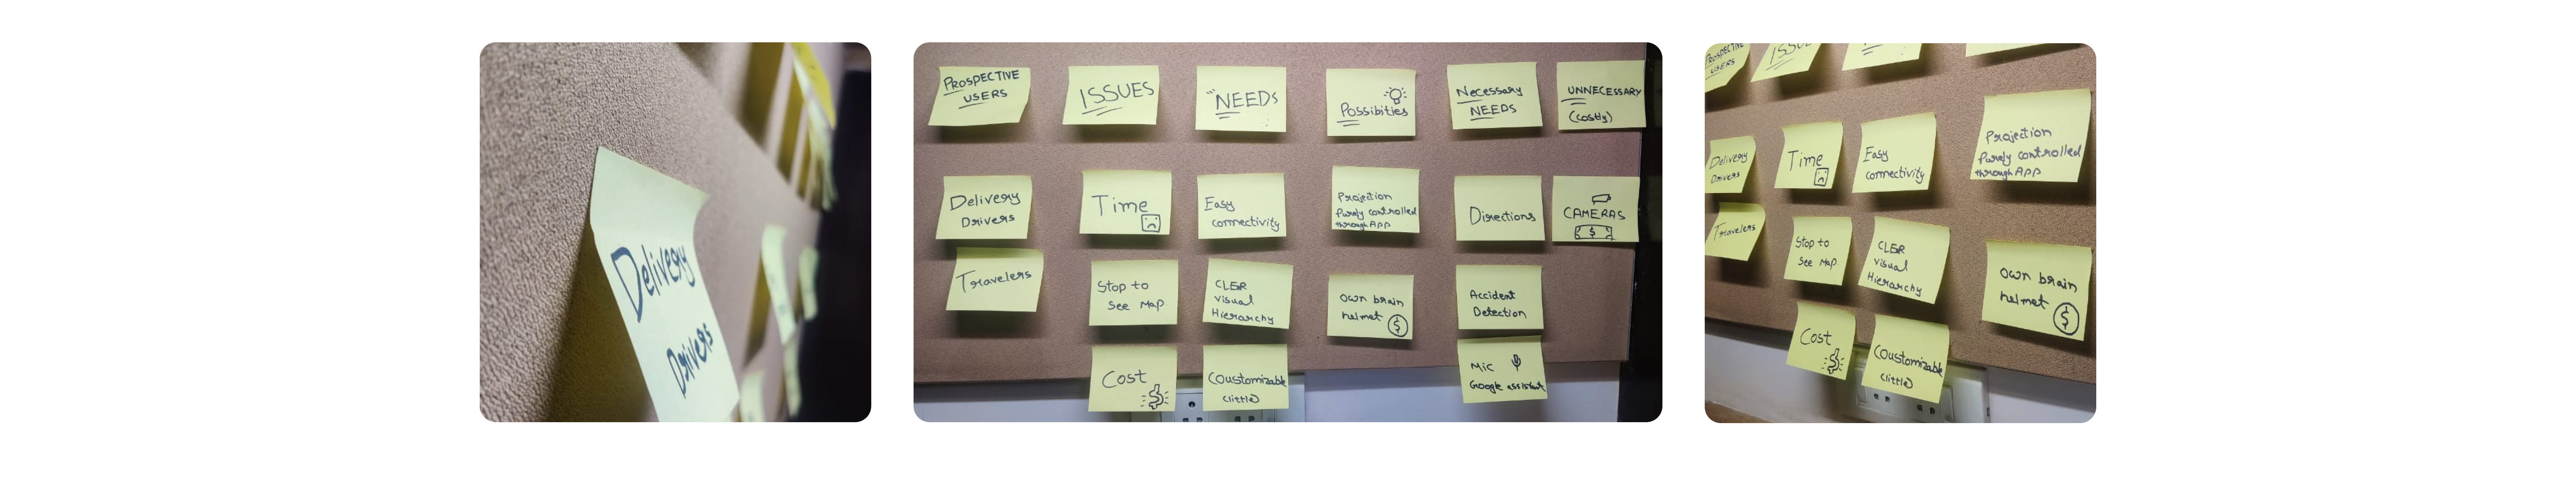 Delivery
Drivers
PROSPECTIVE
USERS
ISSUES
"NEEDS
Possibities
Necessary
NEEDS
UNNECESSARY
(costly)
Delivery
Drivers
Time
Easy
connectivity
Projection
Purely controlled
through APP
Directions
CAMERAS
$
Travelers
Stop to
See Map
CLER
visual
Hierarchy
own brain
helmet $
Accident
Detection
Cost $
Coustomizable
(little)
Mic
Google assistant
PROSPECTIVE
USERS
ISSU
Delivery
Drivers
Time
Easy
connectivity
Projection
Purely controlled
through APP
Travelers
Stop to
See Map
CLER
visual
Hierarchy
own brain
helmet $
Cost
$
Coustomizable
(little)